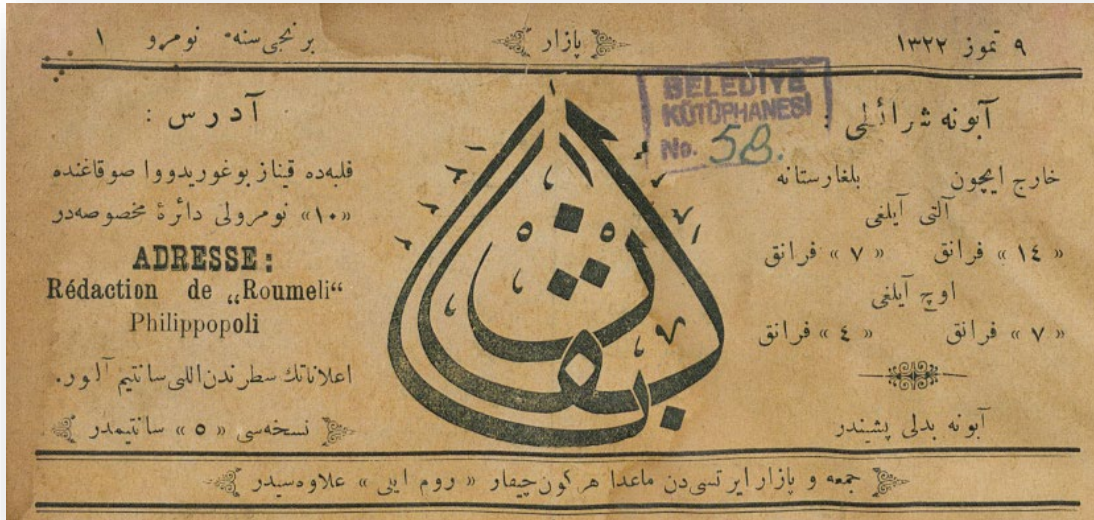 ٩ تموز ١٣٢٢
پازار
برنجی سنه نومرو ١
آبونه شرائطی :
خارج ایچون بلغارستانه
آلتی آیلغی
« ١٤ » فرانق « ٧ » فرانق
اوچ آیلغی
« ٧ » فرانق « ٤ » فرانق
آبونه بدلی پشیندر
BELEDİYE
KÜTÜPHANESİ
No. 58.
آدرس :
فلبه‌ده قیناز بوغوریدووا صوقاغنده
«١٠» نومرولی دائرۀ مخصوصه‌در
ADRESSE :
Rédaction de „Roumeli“
Philippopoli
اعلاناتك سطرندن اللی سانتیم آلور.
نسخه‌سی « ٥ » سانتیمدر
جمعه و پازار ایرتسی‌دن ماعدا هر كون چیقار « روم ایلی » علاوه‌سیدر